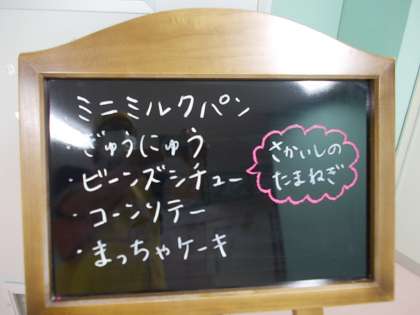 ミニミルクパン
・ぎゅうにゅう
・ビーンズシチュー
・コーンソテー
・まっちゃケーキ
さかいしの
たまねぎ